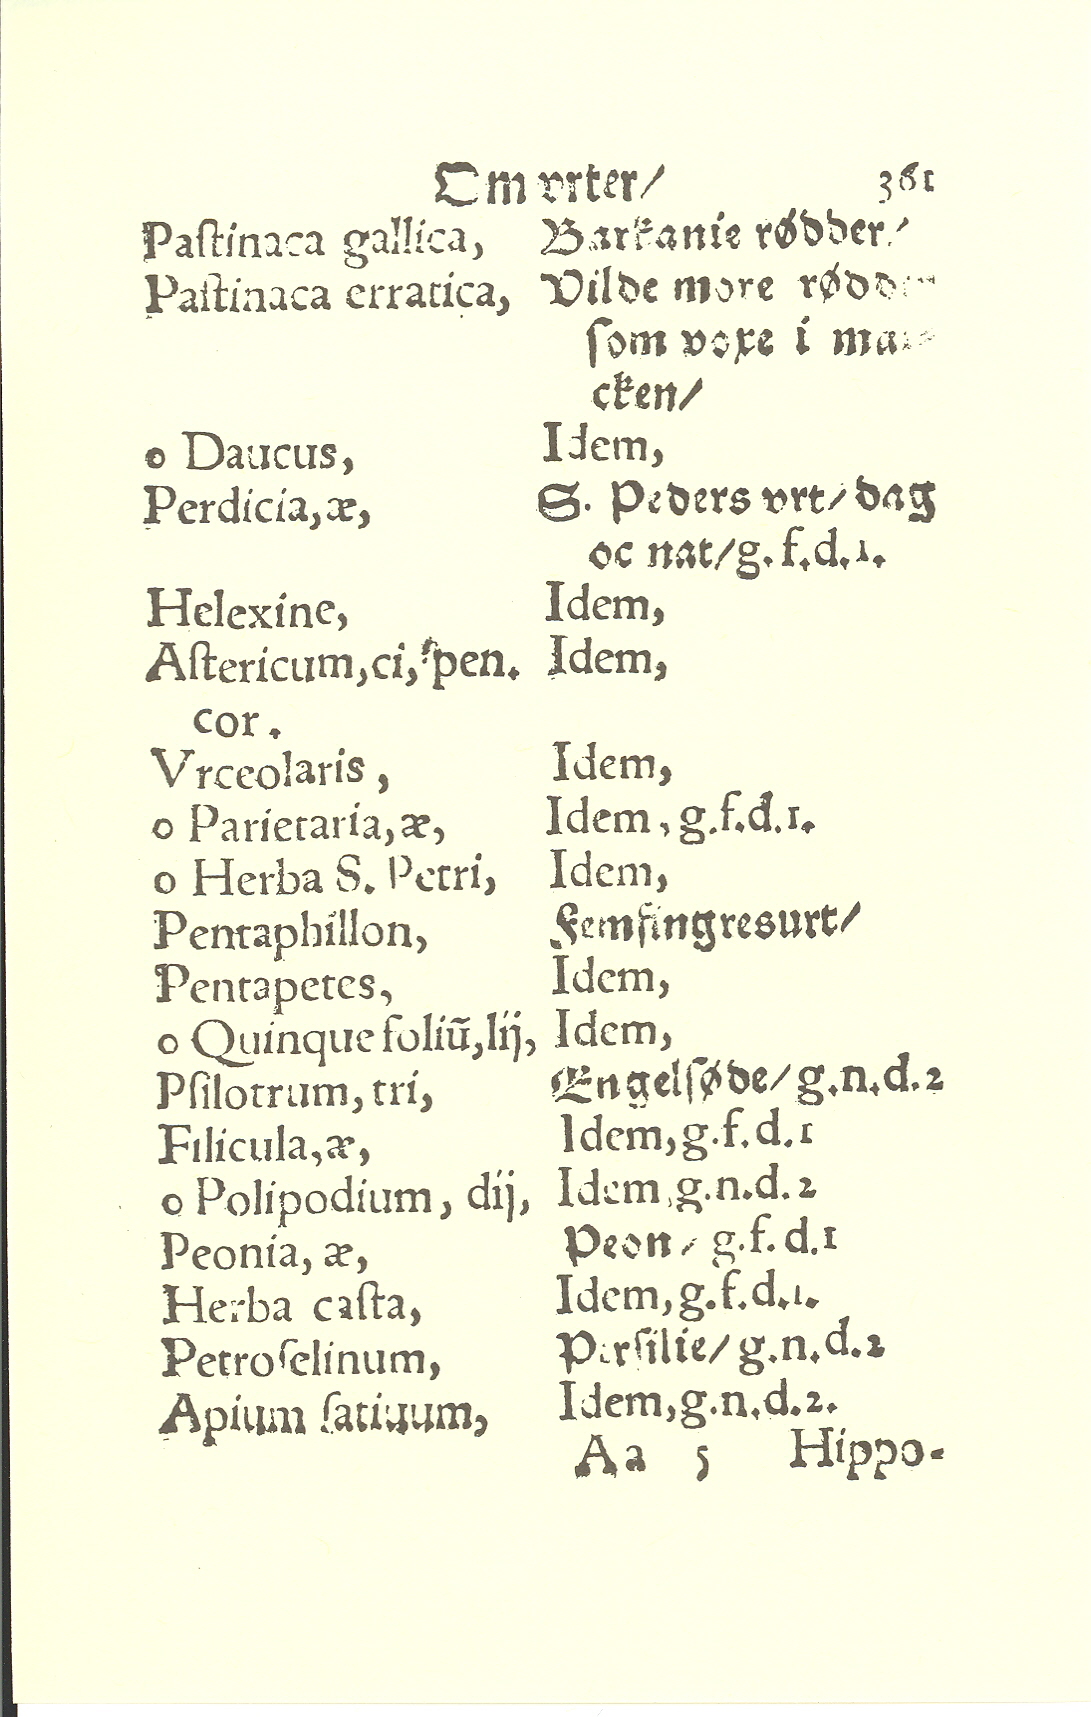 Om vrter/ 361
Paſtinaca gallica, Barkanie rødder/
Paſtinaca erratica, Vilde more rødder
ſom voxe i mar-
cken/
o Daucus, Idem,
Perdicia,æ, S. Peders vrt/ dag
oc nat/g.f.d.1.
Helexine, Idem,
Aſtericum,ci, pen. Idem,
cor.
Vrceolaris, Idem,
o Parietaria,æ, Idem, g.f.d.1.
o Herba S. Petri, Idem,
Pentaphillon, Femfingresurt/
Pentapetes, Idem,
o Quinque foliũ,lij, Idem,
Pſilotrum, tri, Engelſøde/ g.n.d.2
Filicula,æ, Idem,g.f.d.1
o Polipodium, dij, Idem,g.n.d.2
Peonia, æ, Peon/ g.f.d.1
Herba caſta, Idem,g.f.d.1.
Petroſelinum, Perſilie/ g.n.d.2
Apium ſatiuum, Idem,g.n.d.2.
Aa 5 Hippo-